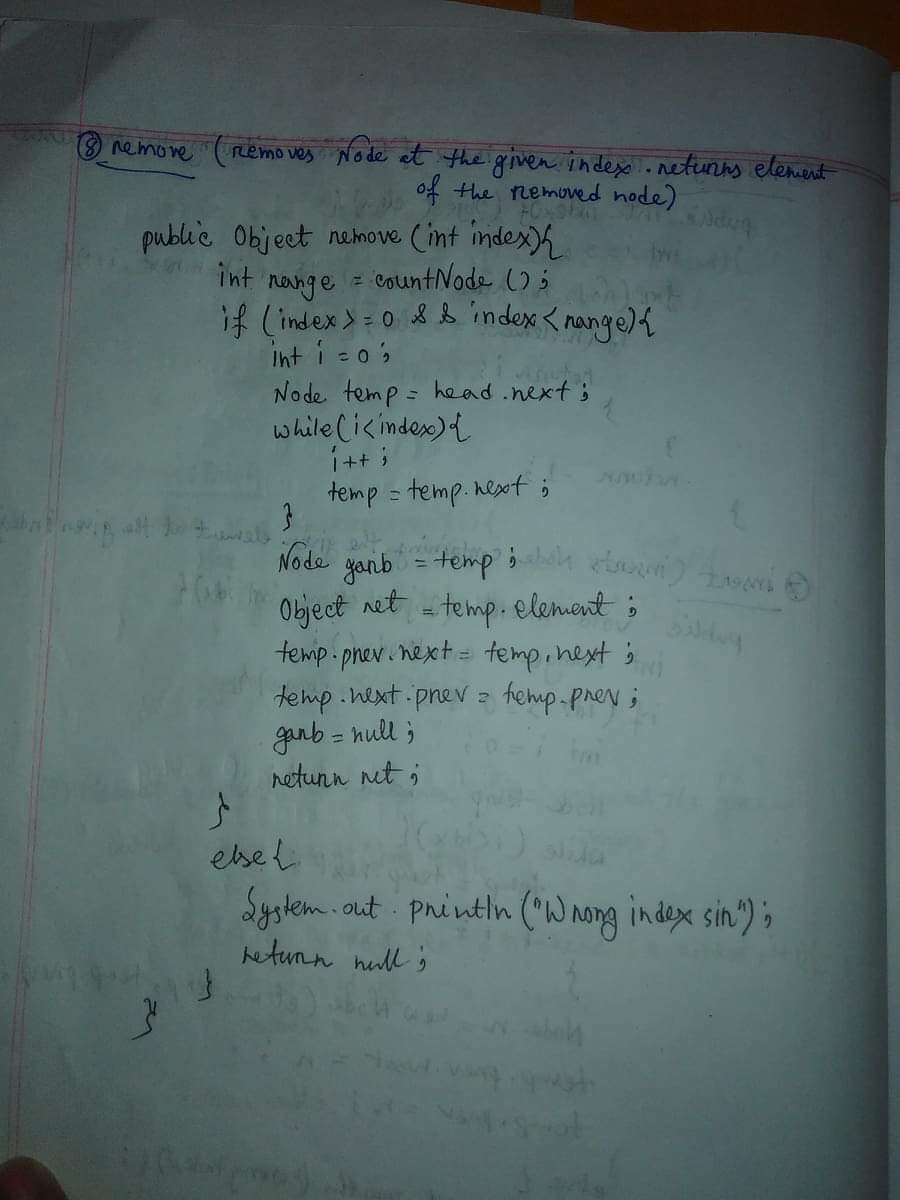 ⑧ remove (removes Node at the given index. returns element
of the removed node)
public Object remove (int index){
int range = countNode ();
if (index >= 0 && index < range){
int i = 0;
Node temp = head.next;
while(i<index){
i++;
temp = temp.next;
}
Node garb = temp;
Object ret = temp.element;
temp.prev.next = temp.next;
temp.next.prev = temp.prev;
garb = null;
return ret;
}
else{
System.out.println("Wrong index sir");
return null;
}
}